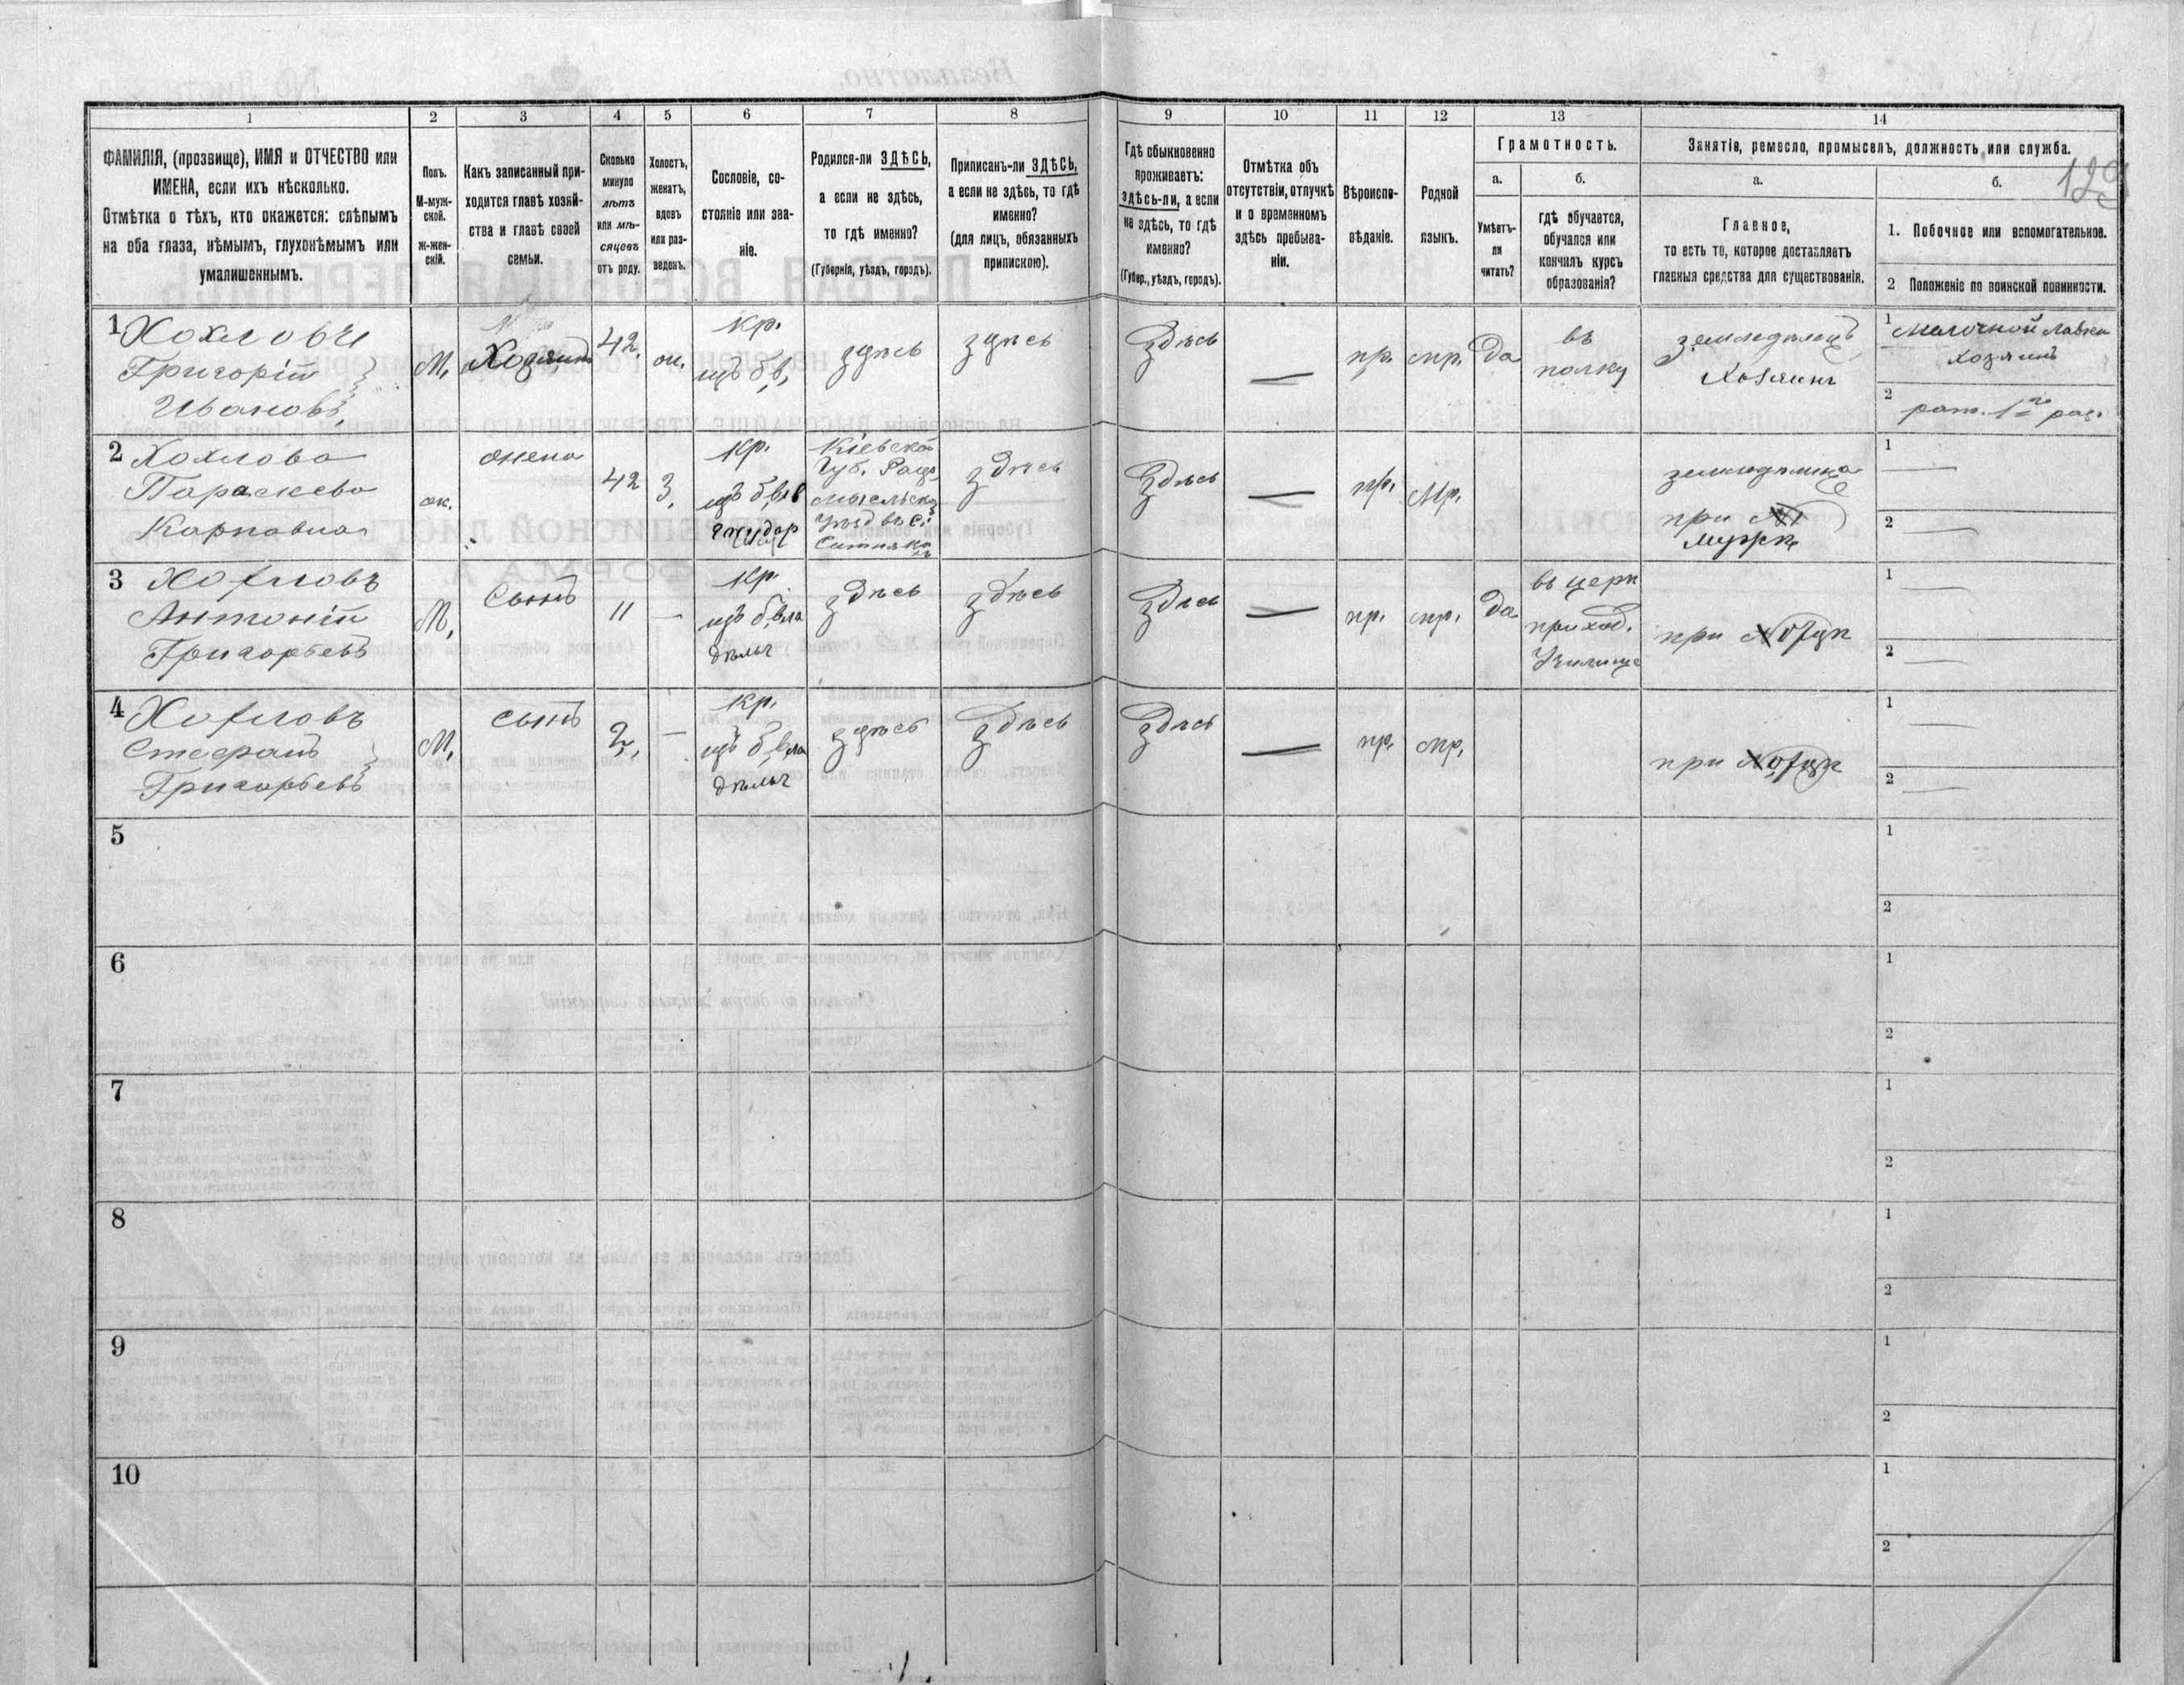 1
2
3
4
5
6
7
8
9
10
11
12
13
14
ФАМИЛІЯ, (прозвище), ИМЯ и ОТЧЕСТВО или
ИМЕНА, если ихъ нѣсколько.
Отмѣтка о тѣхъ, кто окажется: слѣпымъ
на оба глаза, нѣмымъ, глухонѣмымъ или
умалишеннымъ.
Полъ.
М-муж-
ской.
Ж-жен-
скій.
Какъ записанный при-
ходится главѣ хозяй-
ства и главѣ своей
семьи.
Сколько
минуло
лѣтъ
или мѣ-
сяцевъ
отъ роду.
Холостъ,
женатъ,
вдовъ
или раз-
веденъ.
Сословіе, со-
стояніе или зва-
ніе.
Родился-ли ЗДѢСЬ,
а если не здѣсь,
то гдѣ именно?
(Губернія, уѣздъ, городъ).
Приписанъ-ли ЗДѢСЬ,
а если не здѣсь, то гдѣ
именно?
(для лицъ, обязанныхъ
припискою).
Гдѣ обыкновенно
проживаетъ:
здѣсь-ли, а если
не здѣсь, то гдѣ
именно?
(Губер., уѣздъ, городъ).
Отмѣтка объ
отсутствіи, отлучкѣ
и о временномъ
здѣсь пребыва-
ніи.
Вѣроиспо-
вѣданіе.
Родной
языкъ.
Грамотность.
а.
Умѣетъ-
ли
читать?
б.
гдѣ обучается,
обучался или
кончилъ курсъ
образованія?
Занятіе, ремесло, промыселъ, должность или служба.
129
а.
Главное,
то есть то, которое доставляетъ
главныя средства для существованія.
б.
1. Побочное или вспомогательное.
2 Положеніе по воинской повинности.
1
Григорій
Ивановъ
М.
Хозяинъ
42.
ж.
кр.
изъ б. в.
здѣсь
здѣсь
Здѣсь
—
пр.
мр.
да
въ
полку
земледѣлецъ
Хозяинъ
1
мелочной лавки
хозяинъ
2
рат. 1го раз.
2 Хохлова
Параскева
Карповна
ж.
жена
42
З.
кр.
Кіевской
Губ.
Уѣзд
здѣсь
Здѣсь
—
пр.
мр.
при
мужѣ
1 —
2 —
3 Хохловъ
Антоній
Григорьевъ
М.
Сынъ
11
—
кр.
изъ б. вла
дѣльч
здѣсь
здѣсь
Здѣсь
—
пр.
мр.
да
въ церк
приход.
Училище
при
1 —
2 —
4 Хохловъ
Стефанъ
Григорьевъ
М.
сынъ
2.
—
кр.
изъ б. вла
дѣльч
здѣсь
здѣсь
Здѣсь
—
пр.
мр.
при
1 —
2 —
5
1
2
6
1
2
7
1
2
8
1
2
9
1
2
10
1
2